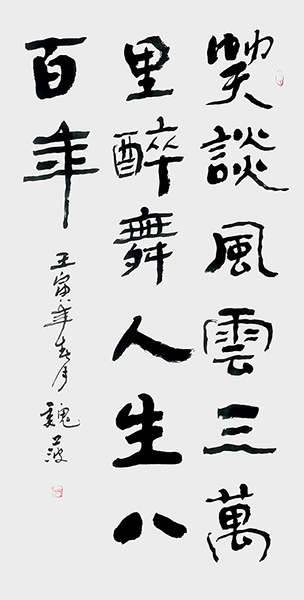 笑談風雲三萬
里醉舞人生八
百年
壬寅年春月
魏波